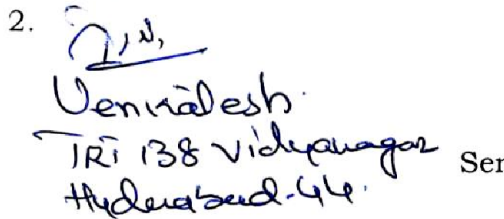 2.
Venkatesh
TRI 138 Vidyanagar Ser
Hyderabad-44.